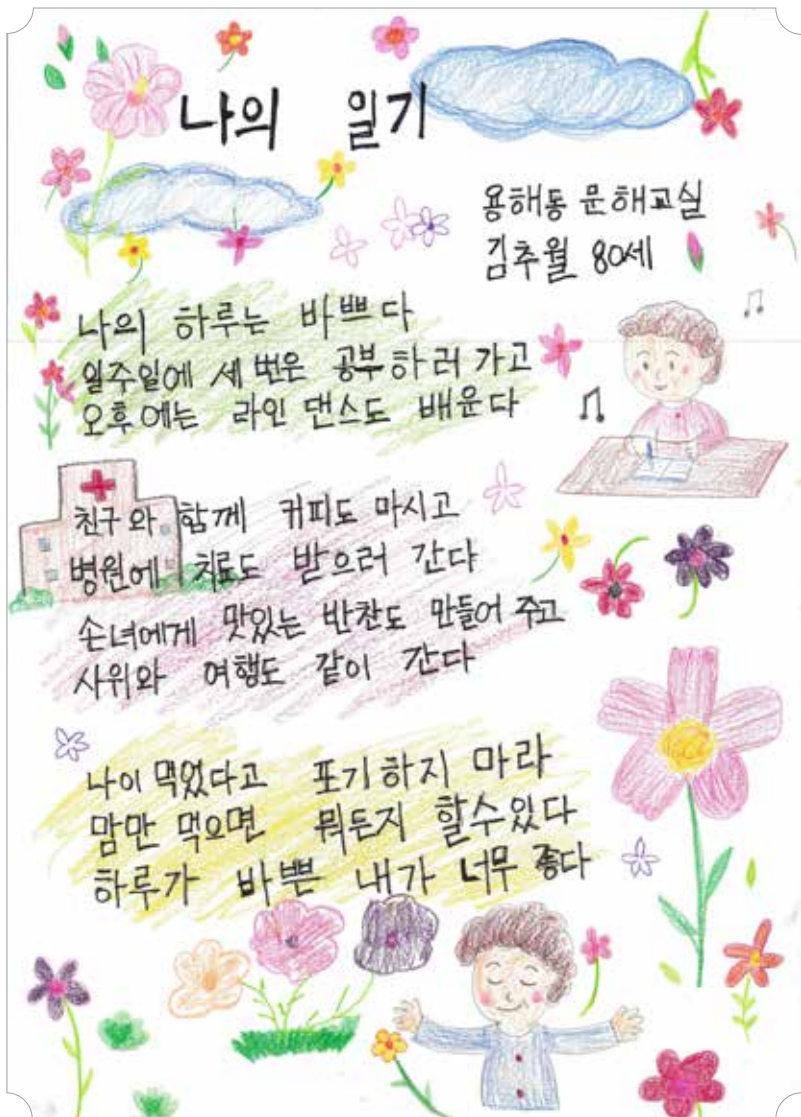 나의 일기
용해동 문해교실
김추월 80세
나의 하루는 바쁘다
일주일에 세 번은 공부하러 가고
오후에는 라인 댄스도 배운다
친구와 함께 커피도 마시고
병원에 치료도 받으러 간다
손녀에게 맛있는 반찬도 만들어 주고
사위와 여행도 같이 간다
나이 먹었다고 포기하지 마라
맘만 먹으면 뭐든지 할수있다
하루가 바쁜 내가 너무 좋다